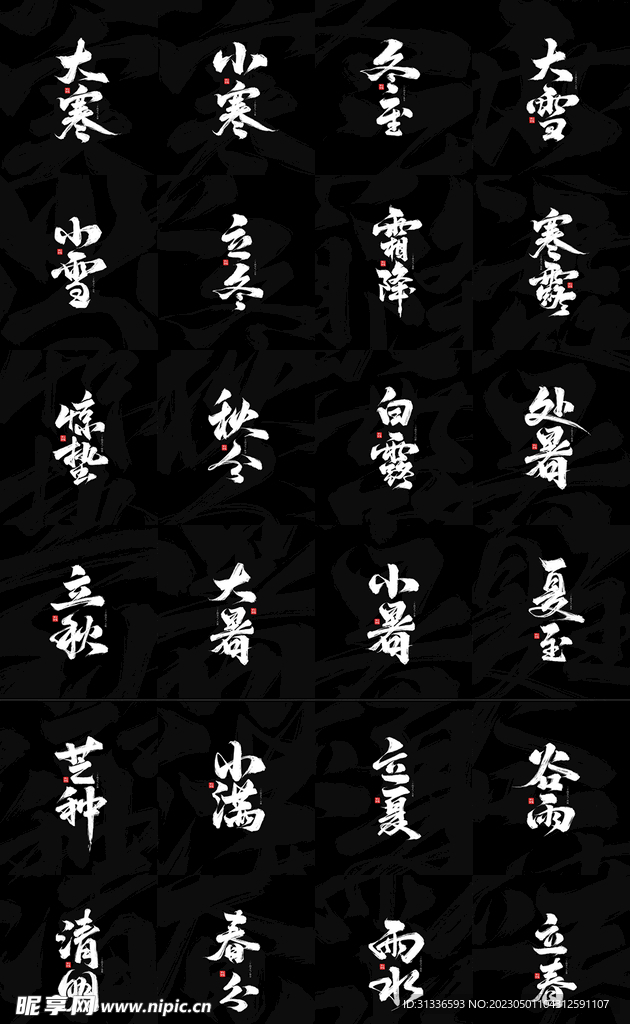 大寒
小寒
冬至
大雪
小雪
立冬
霜降
寒露
惊蛰
秋分
白露
处暑
立秋
大暑
小暑
夏至
芒种
小满
立夏
谷雨
清明
春分
雨水
立春
昵享网 www.nipic.cn
ID:31336593 NO:20230501104312591107